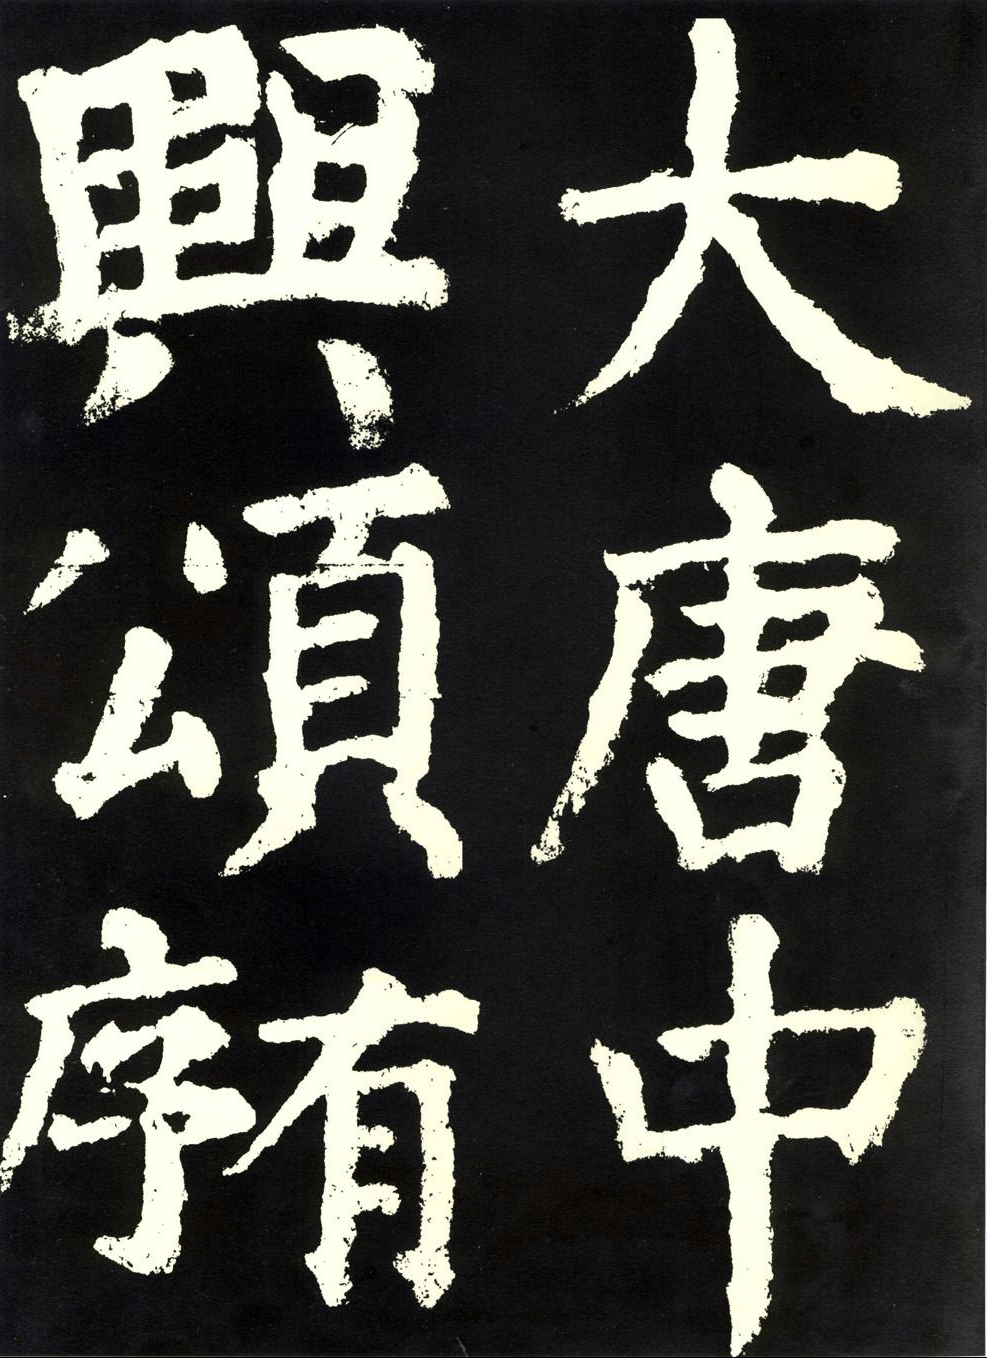 大唐中
興頌有序